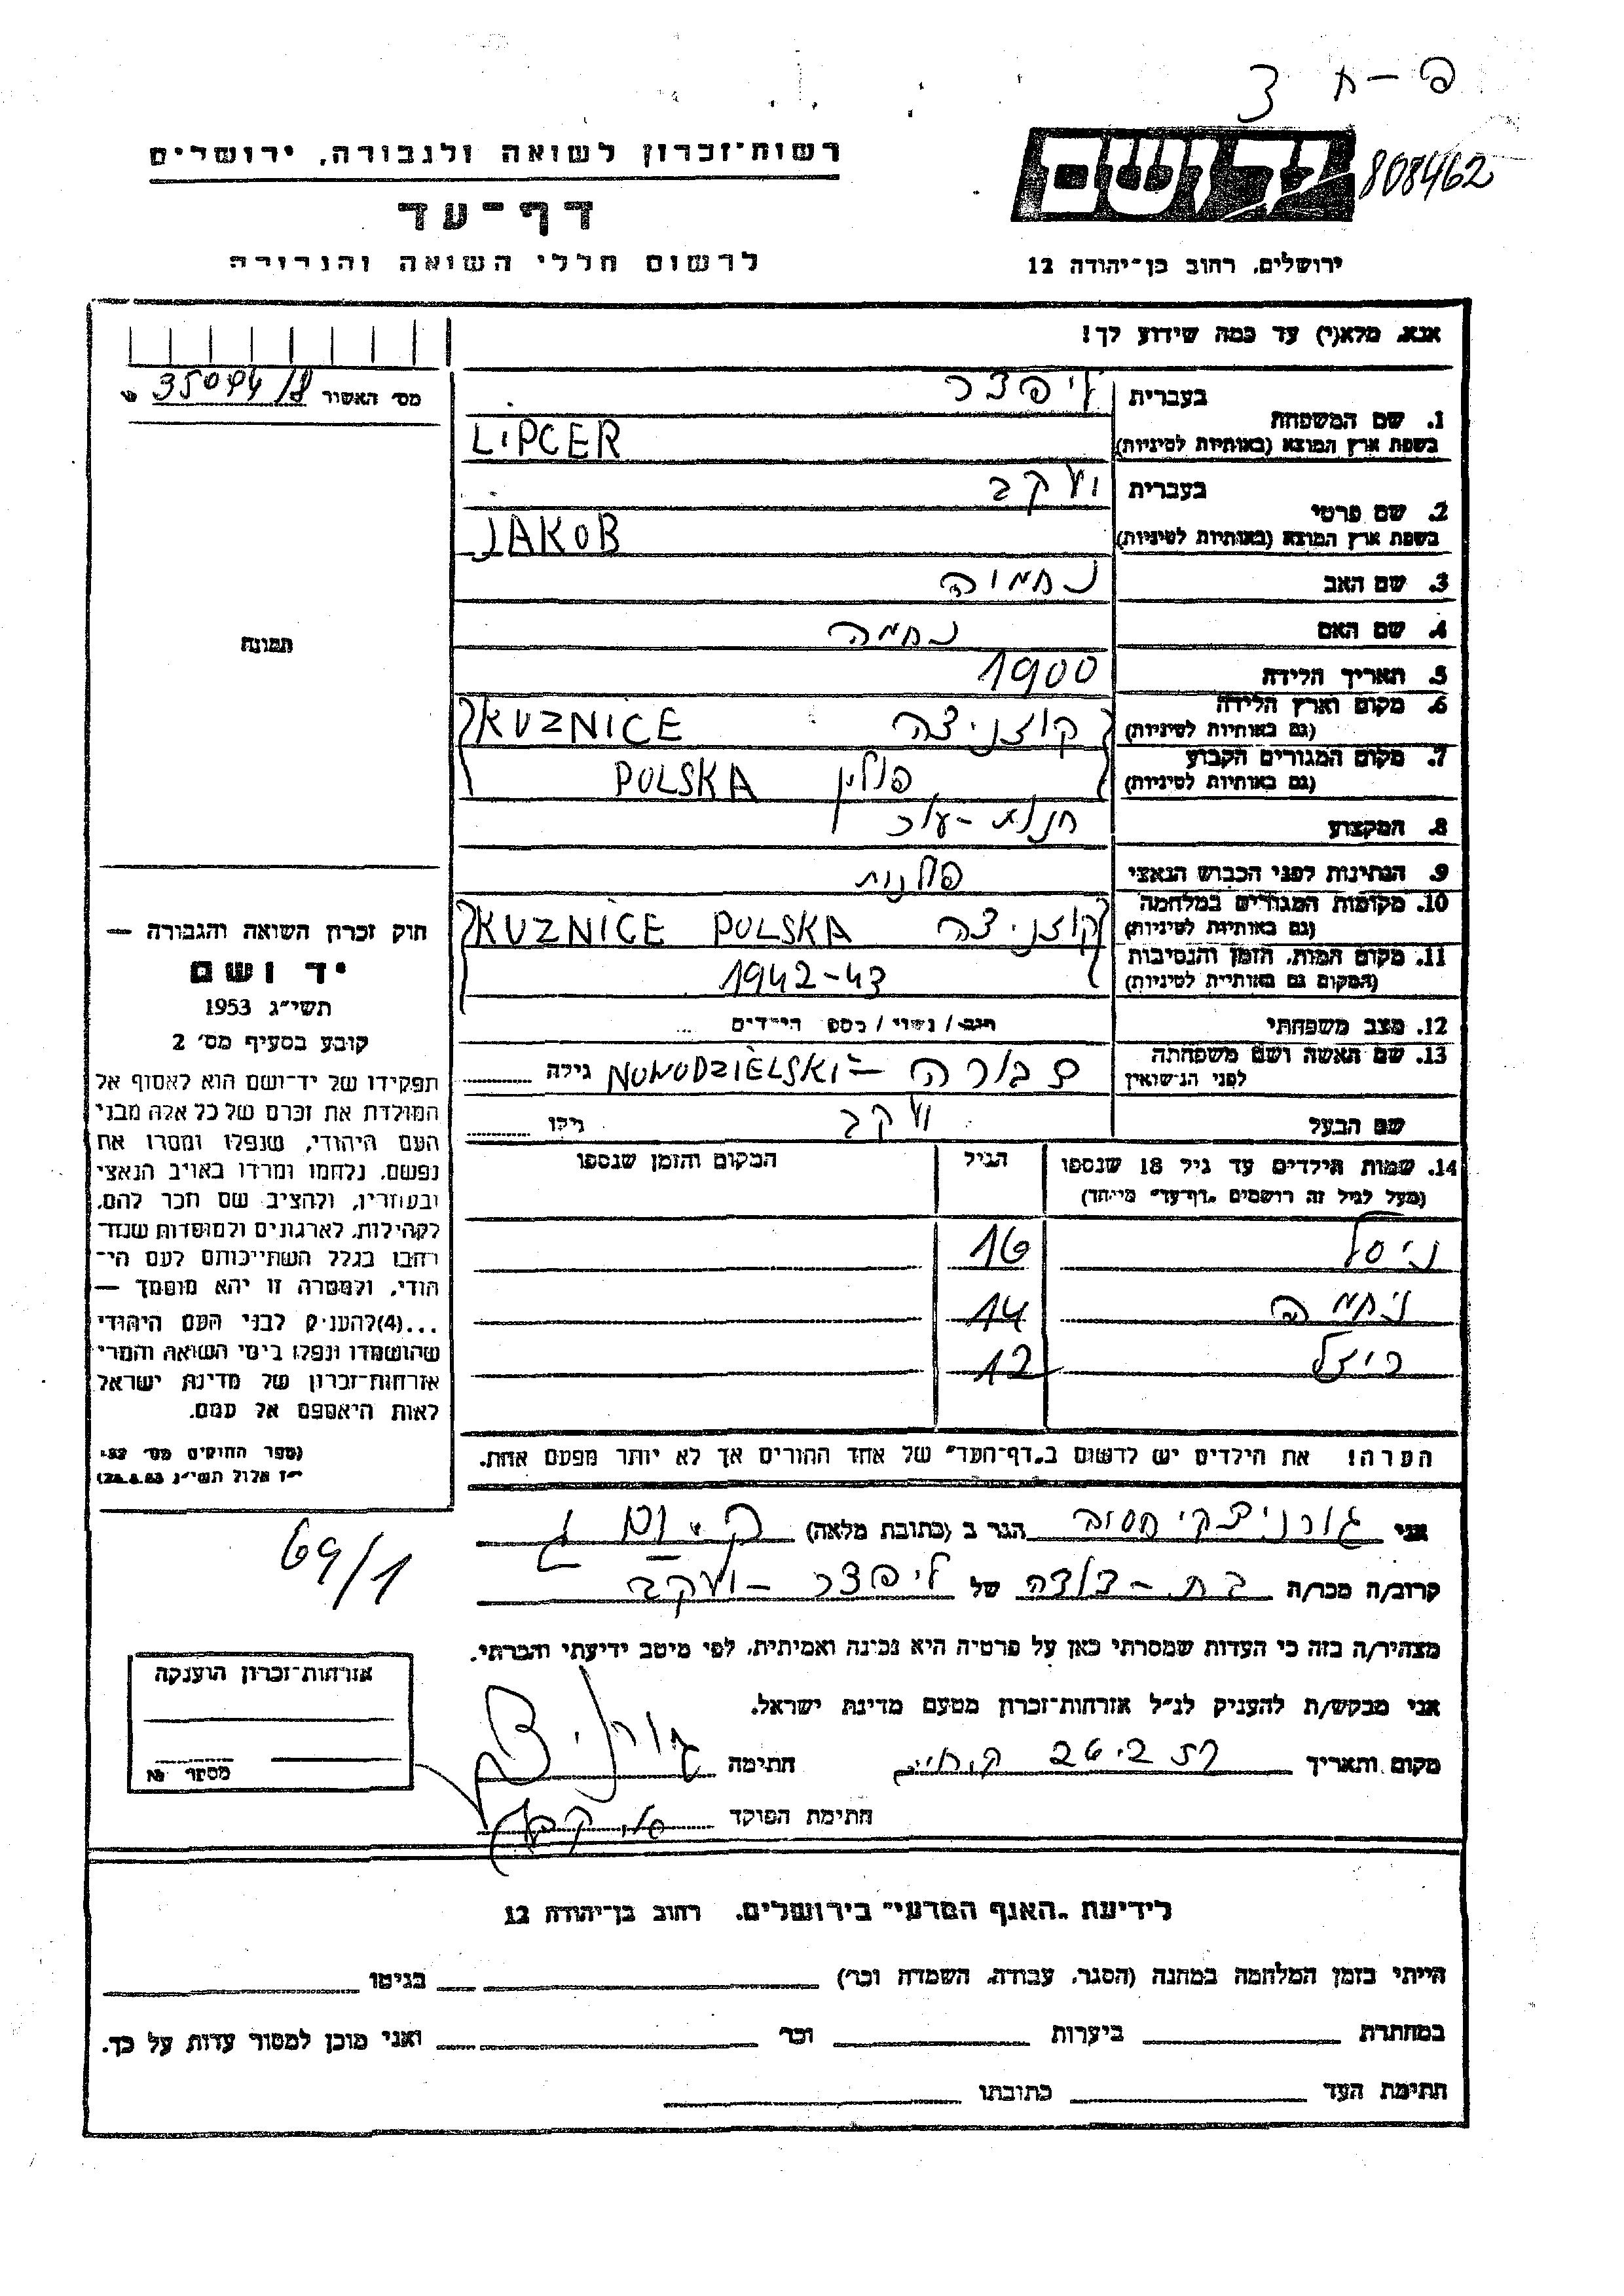 פ-ח 3
808462
רשות-זכרון לשואה ולגבורה, ירושלים
דף-עד
לרשום חללי השואה והגבורה
ירושלים, רחוב בן-יהודה 12
אנא, מלא(י) עד כמה שידוע לך!
מס׳ האשור
תמונה
1. שם המשפחה
בעברית ליפצר
בשפת ארץ המוצא (באותיות לטיניות) LIPCER
2. שם פרטי
בעברית יעקב
בשפת ארץ המוצא (באותיות לטיניות) JAKOB
3. שם האב נחמיה
4. שם האם נחמה
5. תאריך הלידה 1900
6. מקום וארץ הלידה
(גם באותיות לטיניות) קוזניצה KUZNICE
7. מקום המגורים הקבוע
(גם באותיות לטיניות) פולין POLSKA
8. המקצוע
9. הנתינות לפני הכבוש הנאצי פולנית
10. מקומות המגורים במלחמה
(גם באותיות לטיניות) קוזניצה KUZNICE POLSKA
11. מקום המות, הזמן והנסיבות
(המקום גם באותיות לטיניות) 1942-43
12. מצב משפחתי רווק / נשוי / מספר הילדים ...
13. שם האשה ושם משפחתה
לפני הנישואין דבורה - NOWODZIELSKI גילה
שם הבעל יעקב גילו
14. שמות הילדים עד גיל 18 שנספו
(מעל לגיל זה רושמים „דף-עד״ מיוחד)
הגיל
המקום והזמן שנספו
ניסל 16
נחמה 14
בייזל 12
הערה! את הילדים יש לרשום ב„דף-העד״ של אחד ההורים אך לא יותר מפעם אחת.
חוק זכרון השואה והגבורה —
יד ושם
תשי״ג 1953
קובע בסעיף מס׳ 2
תפקידו של יד-ושם הוא לאסוף אל
המולדת את זכרם של כל אלה מבני
העם היהודי, שנפלו ומסרו את
נפשם, נלחמו ומרדו באויב הנאצי
ובעוזריו, ולהציב שם וזכר להם,
לקהילות, לארגונים ולמוסדות שנח־
רבו בגלל השתייכותם לעם הי־
הודי, ולמטרה זו יהא מוסמך —
...(4) להעניק לבני העם היהודי
שהושמדו ונפלו בימי השואה והמרי
אזרחות-זכרון של מדינת ישראל
לאות היאספם אל עמם.
(ספר החוקים מס׳ 132
י״ז אלול תשי״ג 28.8.53)
69/1
אני גורניצקי הגר ב (כתובת מלאה)
קרוב/ה מכר/ה בת-דודה של ליפצר - יעקב
מצהיר/ה בזה כי העדות שמסרתי כאן על פרטיה היא נכונה ואמיתית, לפי מיטב ידיעתי והכרתי.
אני מבקש/ת להעניק לנ״ל אזרחות-זכרון מטעם מדינת ישראל.
מקום ותאריך חתימה
חתימת הפוקד
אזרחות-זכרון הוענקה
מספר
לידיעת „האגף המדעי״ בירושלים, רחוב בן-יהודה 12
הייתי בזמן המלחמה במחנה (הסגר, עבודה, השמדה וכו׳) בגיטו
במחתרת ביערות וכו׳ ואני מוכן למסור עדות על כך.
חתימת העד כתובתו